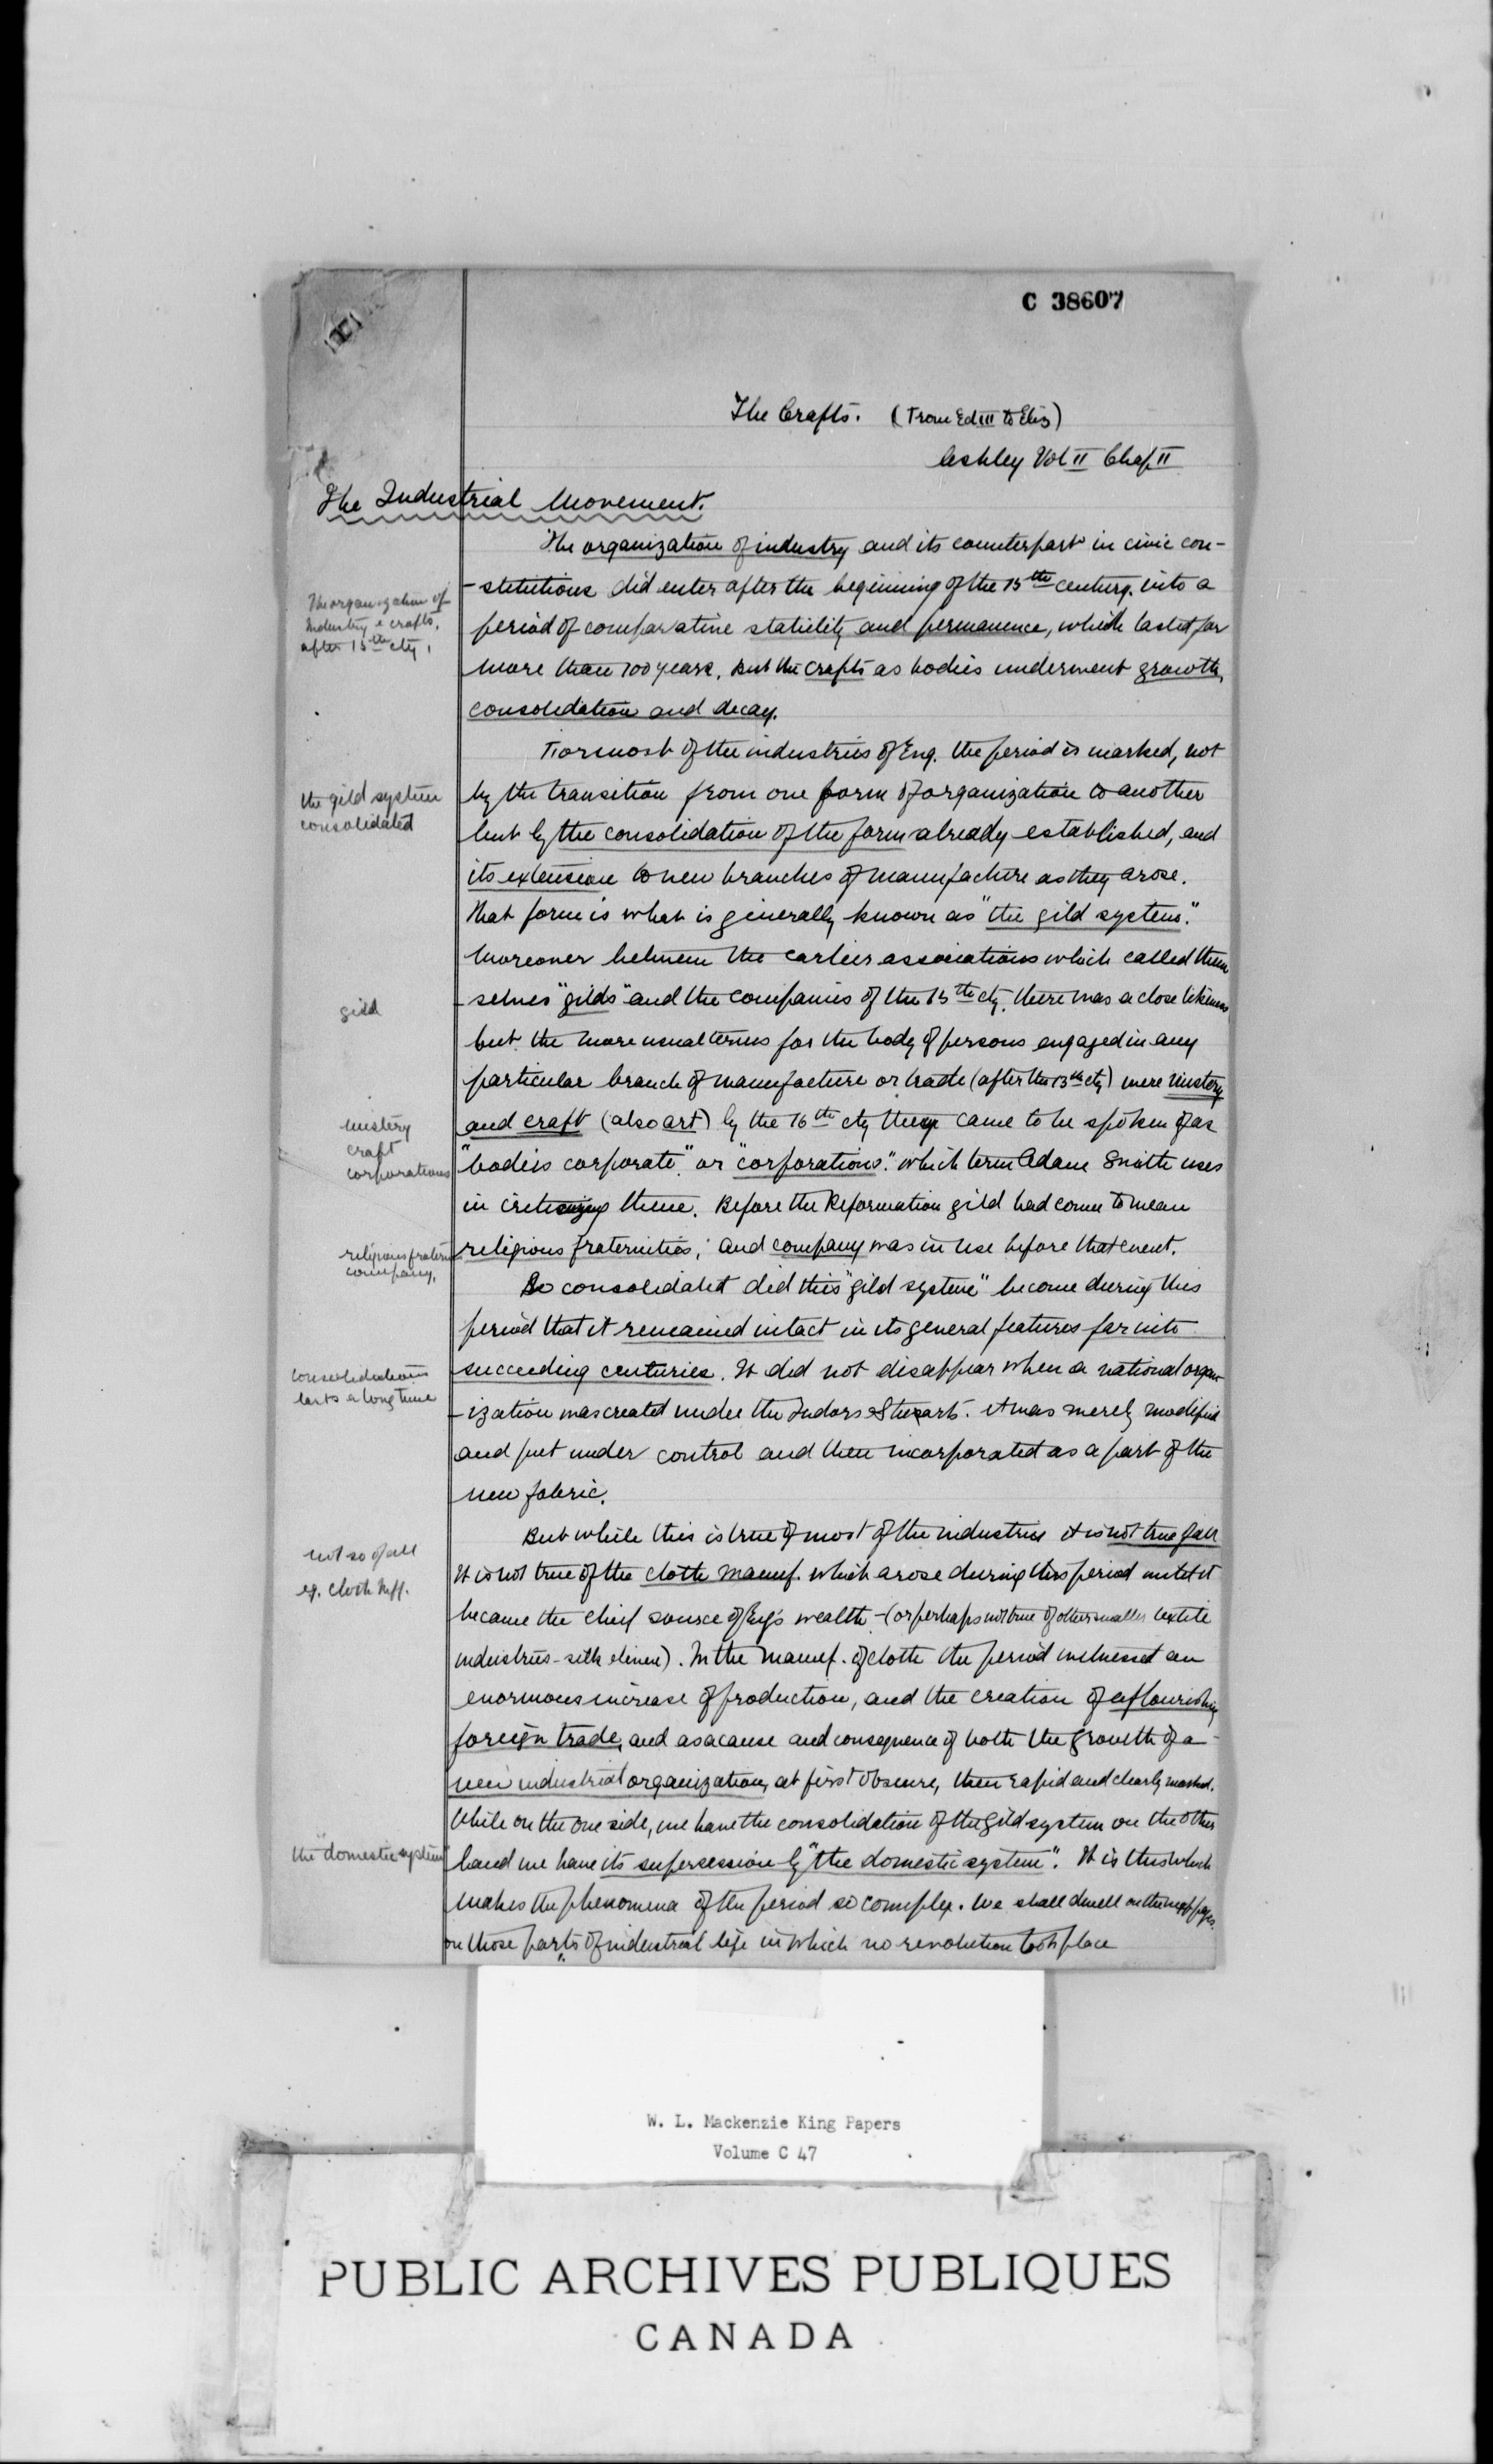 C 38607
The Crafts. (From Ed III to Eliz)
Ashley Vol II Chap II
The Industrial Movement.
The organization of industry and its counterpart in civic con-
-stitutions did enter after the beginning of the 15th century into a
The organization of
industry & crafts,
after 15th cty.
period of comparative stability and permanence, which lasted for
more than 100 years. But the crafts as bodies underwent growth,
consolidation and decay.
For most of the industries of Eng. the period is marked, not
the gild system
consolidated
by the transition from one form of organization to another
but by the consolidation of the form already established, and
its extension to new branches of manufacture as they arose.
That form is what is generally known as "the gild system."
Moreover between the earlier associations which called them
gild
-selves "gilds" and the companies of the 15th cty. there was a close likeness
but the more usual terms for the body of persons engaged in any
particular branch of manufacture or trade (after the 13th cty) were mistery
mistery
craft
corporations
and craft (also art) by the 16th cty they came to be spoken of as
"bodies corporate" or "corporations." which term Adam Smith uses
in criticizing them. Before the Reformation gild had come to mean
religious fratern
company.
religious fraternities, and company was in use before that event.
So consolidated did this "gild system" become during this
period that it remained intact in its general features far into
consolidation
lasts a long time
succeeding centuries. It did not disappear when a national organ-
-ization was created under the Tudors & Stuarts. it was merely modified
and put under control and then incorporated as a part of the
new fabric.
But while this is true of most of the industries it is not true of all
not so of all
eg. cloth mff.
It is not true of the cloth manuf. which arose during this period until it
became the chief source of Eng's wealth - (or perhaps not true of other smaller textile
industries - silk & linen). In the manuf. of cloth the period witnessed an
enormous increase of production, and the creation of a flourishing
foreign trade, and as a cause and consequence of both the growth of a
new industrial organization, at first obscure, then rapid and clearly marked.
While on the one side, we have the consolidation of the gild system on the other
the "domestic system"
hand we have its supersession by "the domestic system". It is this which
makes the phenomena of the period so complex. We shall dwell on the next pages
on those parts of industrial life in which no revolution took place
W. L. Mackenzie King Papers
Volume C 47
PUBLIC ARCHIVES PUBLIQUES
CANADA